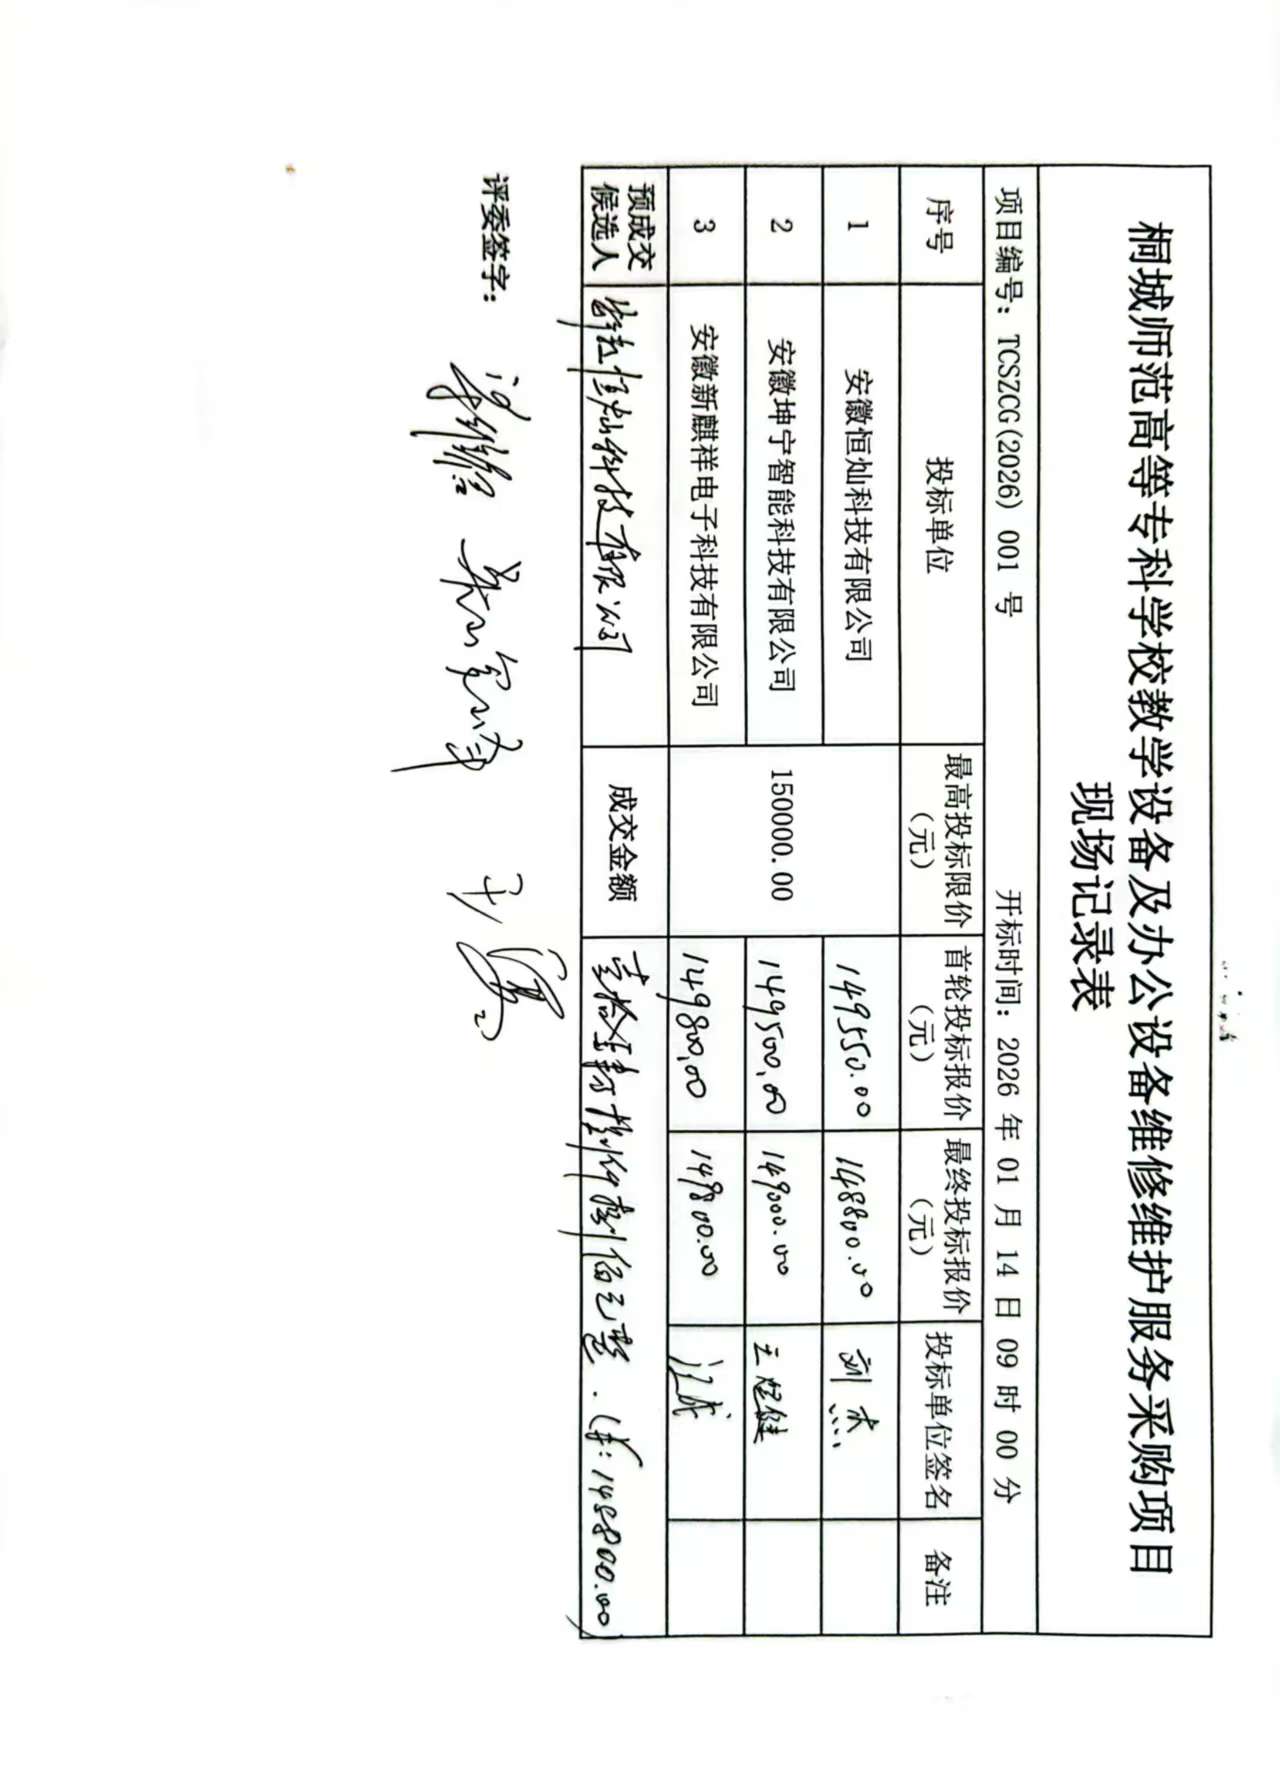 桐城师范高等专科学校教学设备及办公设备维修维护服务采购项目
现场记录表
项目编号：TCSZCG(2026) 001 号 开标时间：2026 年 01 月 14 日 09 时 00 分
序号 投标单位 最高投标限价（元） 首轮投标报价（元） 最终投标报价（元） 投标单位签名 备注
1 安徽恒灿科技有限公司 150000.00 149550.00 148800.00 刘杰
2 安徽坤宁智能科技有限公司 149500.00 149000.00
3 安徽新麒祥电子科技有限公司 149800.00 149800.00
预成交候选人 安徽恒灿科技有限公司 成交金额 壹拾肆万捌仟捌佰元整.(¥:148800.00)
评委签字：